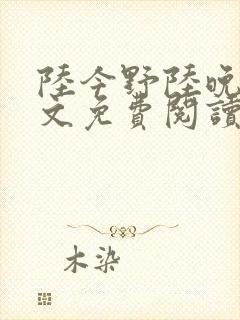 陸今野陸晚
文免費閱讀
木染